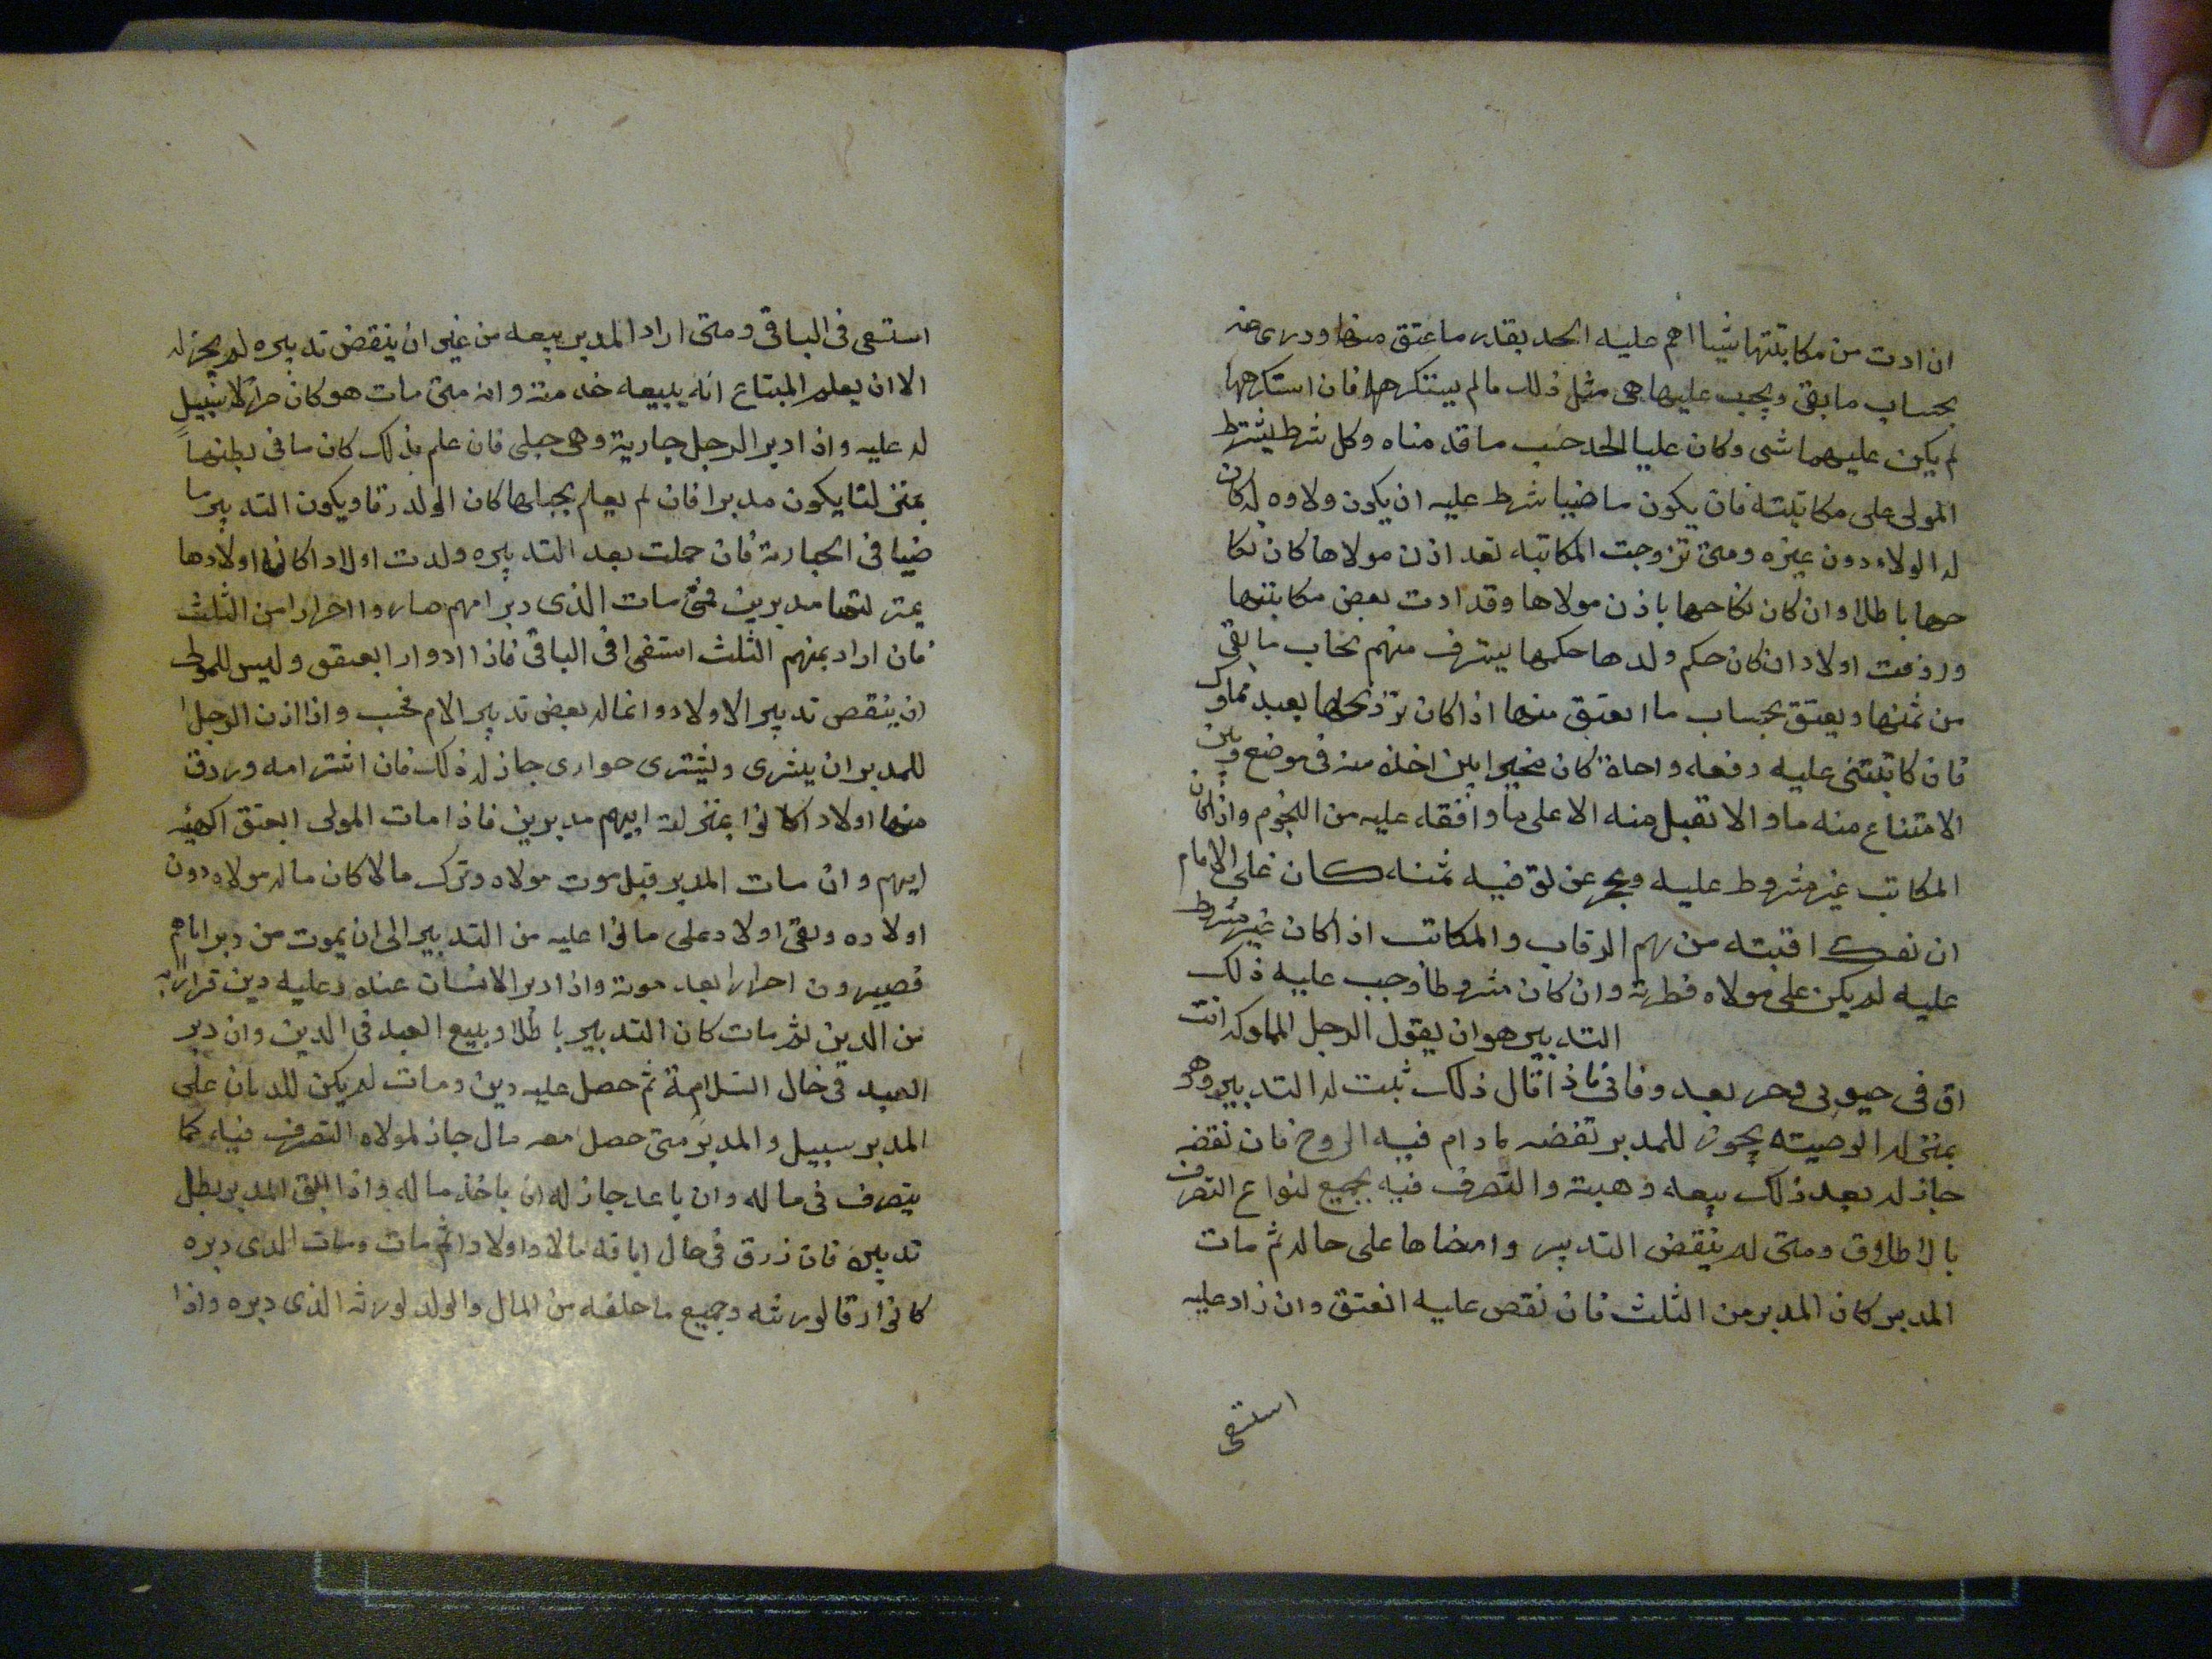 ان ادت من مكاتبتها شيئا اقيم عليه الحد بقدر ما عتق منها ودرى عنه
بحساب ما بقى ويجب عليها هى مثل ذلك ما لم يستكرهها فان استكرهها
لم يكن عليها شى وكان عليه الحد حسب ما قدمناه وكل شرط يشترط
المولى على مكاتبته فان يكون ماضيا شرط عليه ان يكون ولاوه له كان
له الولاء دون غيره ومتى تزوجت المكاتبه بغد اذن مولاها كان نكا
حها باطلا وان كان نكاحها باذن مولاها وقد ادت بعض مكاتبتها
ورزقت اولادا كان حكم ولدها حكمها يسترق منهم بحاب ما بقى
من ثمنها ويعتق بحساب ما انعتق منها اذا كان تزويجها بعبد مملوك
فان كاتبتنى عليه دفعه واحدة كان مخيرا بين اخذه منه فى موضع وبين
الامتناع منه ما والا تقبل منه الا على ما وافقه عليه من النجوم واذا كان
المكاتب غير مشروط عليه وعجز عن توفيه ثمنه كان على الامام
ان نفك اقبته من سهم الرقاب والمكاتب اذا كان غير مشروط
عليه لم يكن على مولاه فطرته وان كان مشروطا وجب عليه ذلك
التدبير هو ان يقول الرجل المملوكه انت
رق فى حيوتى وحر بعد وفاتى فاذا قال ذلك ثبت له التدبير وهو
بمنزله الوصيته يجوز للمدبر نقضه مادام فيه الروح فان نقضه
جاز له بعد ذلك بيعه وهبته والتصرف فيه بجميع انواع التصرف
بالاطلاق ومتى لم ينقض التدبير وامضاها على حاله ثم مات
المدبر كان المدبر من الثلث فان نقص عليه انعتق وان زاد عليه
استسعى
استسعى فى الباقى ومتى اراد المدبر بيعه من غير ان ينقض تدبيره لم يجز له
الا ان يعلم المبتاع انه يبيعه خدمته وانه متى مات هو كان حرا لا سبيل
له عليه واذا دبر الرجل جارية وهى حبلى فان علم بذلك كان ما فى بطنها
بمنزلتها يكون مدبرا فان لم يعلم بحبلها كان الولد رقا ويكون التدبير ما
ضيا فى الجارية فان حملت بعد التدبيره ولدت اولادا كان اولادها
بمنزلتها مدبرين فمتى مات الذى دبر امهم صاروا احرارا من الثلث
فان اراد بمنهم الثلث استسعى فى الباقى فاذا ادوا انعتقو وليس للمولى
ان ينقص تدبير الاولاد وانما له بعض تدبير الام فحسب واذا اذن الرجل
للمدبر ان يشرى ويشترى جوارى جاز له ذلك فان اشترا مه ورزق
منها اولادا كانوا بمنزلة ابيهم مدبرين فاذا مات المولى انعتق اكهيئه
ابيهم وان مات المدبر قبل موت مولاه وترك مالا كان ماله مولاه دون
اولاده وبقى اولاد على ما نوا عليه من التدبير الى ان يموت من دبر اباهم
فصيرون احرارا بعد موته واذا دبر الانسان عبده وعليه دين فرارا به
من الدين ثم مات كان التدبير باطلا وبيع العبد فى الدين وان دبر
العبد فى حال السلامة ثم حصل عليه دين ومات لم يكن للديان على
المدبر سبيل والمدبر متى حصل معه مال جاز لمولاه التصرف فيه كما
يتصرف فى ماله وان باعه جاز له ان ياخذ ماله واذا ابق المدبر بطل
تدبيره فان رزق فى حال اباقه مالا واولادا ثم مات ومات الذى دبره
كانوا رقا لورثته وجميع ما خلفه من المال والولد لورثه الذى دبره واذا